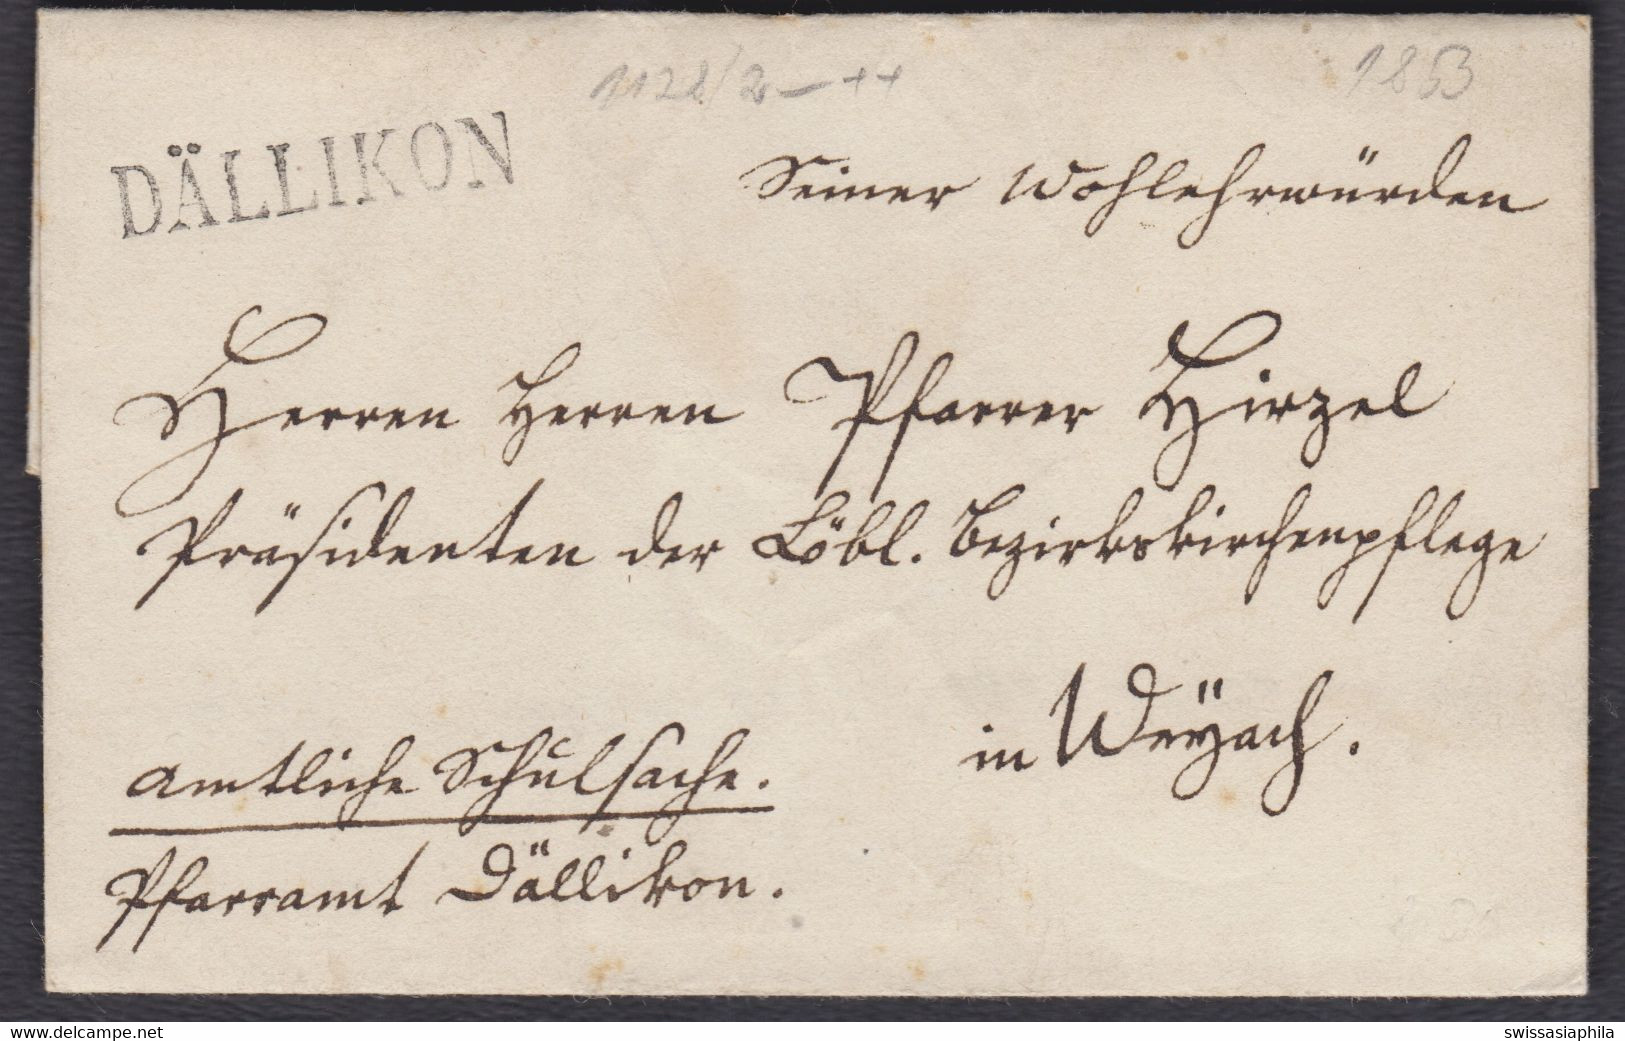 1128/2 — ++
1853
DÄLLIKON
Seiner Wohlehrwürden
Herren Herren Pfarrer Hirzel
Präsidenten der Löbl. Bezirkskirchenpflege
in Weÿach.
Amtliche Schulsache.
Pfarramt Dällikon.
www.delcampe.net
swissasiaphila